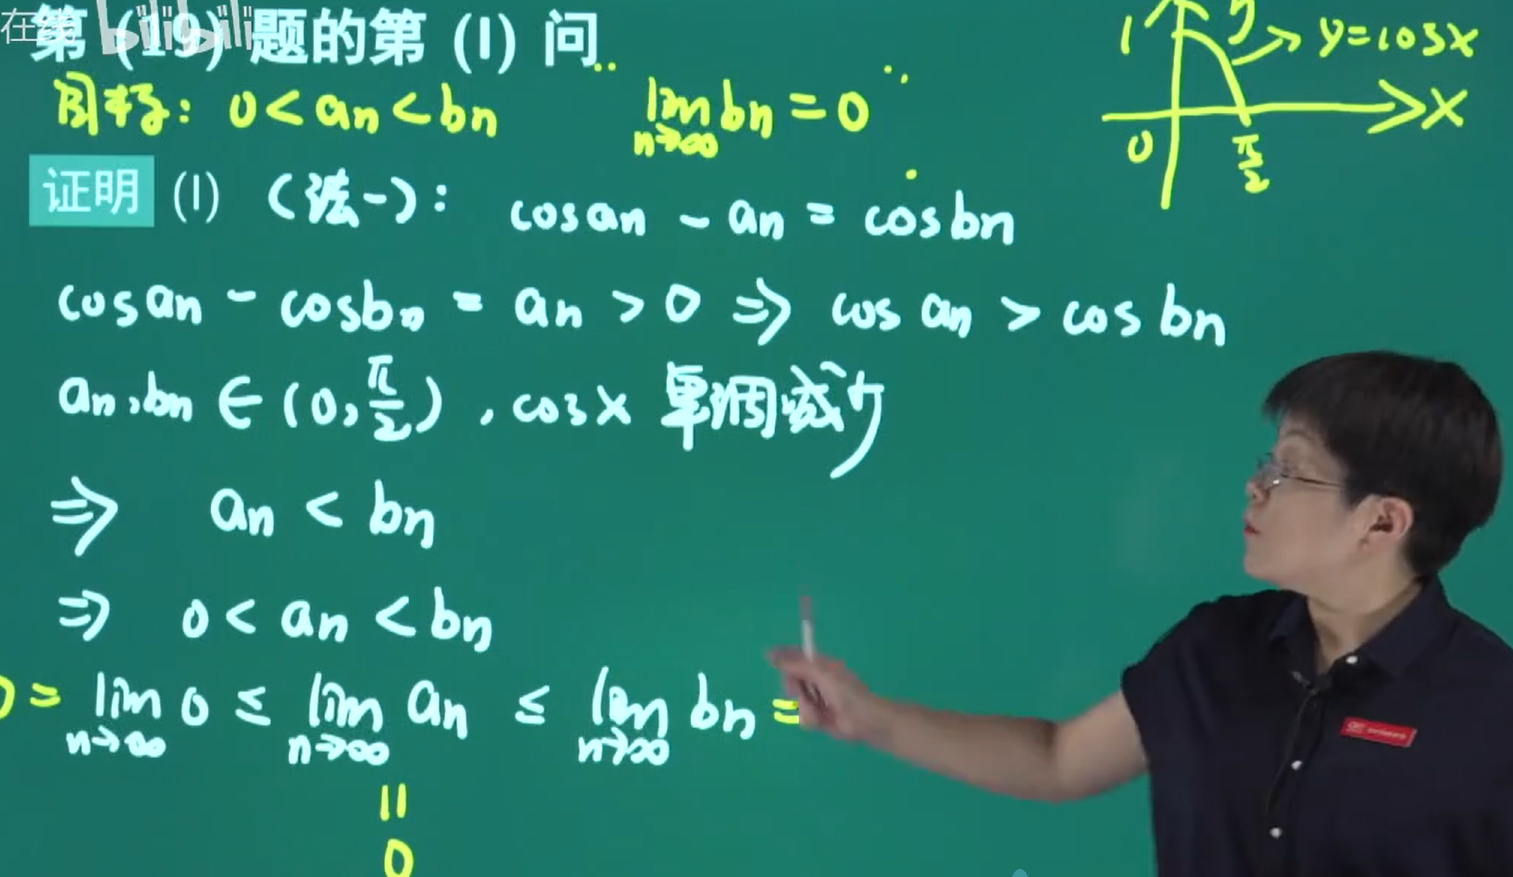 在线 bilibili
第 (19) 题的第 (1) 问
目标: 0 < an < bn lim n→∞ bn = 0
1 y y=cosx
0 π/2 x
证明 (1) (法一): cosan - an = cosbn
cosan - cosbn = an > 0 ⇒ cos an > cos bn
an,bn ∈ (0, π/2), cosx 单调减少
⇒ an < bn
⇒ 0 < an < bn
0 = lim n→∞ 0 ≤ lim n→∞ an ≤ lim n→∞ bn =
||
0